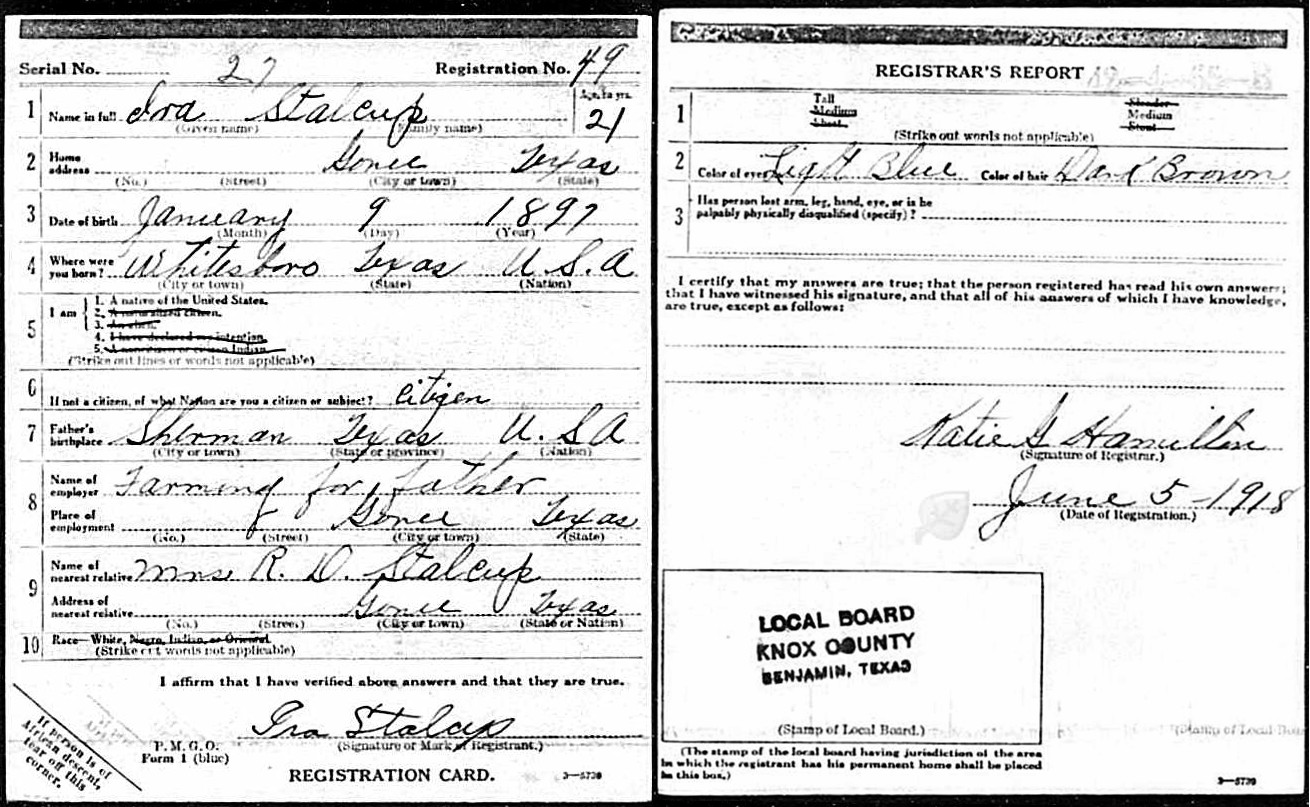 Serial No. 27 Registration No. 49
1 Name in full Ira Stalcup Age, in yrs. 21
(Given name) (Family name)
2 Home address Goree Texas
(No.) (Street) (City or town) (State)
3 Date of birth January 9 1897
(Month) (Day) (Year)
4 Where were you born? Whitesboro Texas U.S.A
(City or town) (State) (Nation)
5 I am
1. A native of the United States.
2. A naturalized citizen.
3. An alien.
4. I have declared my intention.
5. A noncitizen or citizen Indian.
(Strike out lines or words not applicable)
6 If not a citizen, of what Nation are you a citizen or subject? Citizen
7 Father's birthplace Sherman Texas U.S A
(City or town) (State or province) (Nation)
8 Name of employer Farming for father
Place of employment Goree Texas
(No.) (Street) (City or town) (State)
9 Name of nearest relative Mrs R. D. Stalcup
Address of nearest relative Goree Texas
(No.) (Street) (City or town) (State or Nation)
10 Race—White, Negro, Indian, or Oriental.
(Strike out words not applicable)
I affirm that I have verified above answers and that they are true.
Ira Stalcup
(Signature or Mark of Registrant.)
P. M. G. O.
Form 1 (blue)
REGISTRATION CARD.
3—5739
If person is of
African descent,
tear off this
corner.
REGISTRAR'S REPORT
1 Tall Slender
Medium Medium
Short. Stout.
(Strike out words not applicable)
2 Color of eyes Light Blue Color of hair Dark Brown
3 Has person lost arm, leg, hand, eye, or is he
palpably physically disqualified (specify)?
I certify that my answers are true; that the person registered has read his own answers;
that I have witnessed his signature, and that all of his answers of which I have knowledge,
are true, except as follows:
Katie G Hamilton
(Signature of Registrar.)
June 5-1918
(Date of Registration.)
LOCAL BOARD
KNOX COUNTY
BENJAMIN, TEXAS
(Stamp of Local Board.)
(The stamp of the local board having jurisdiction of the area
in which the registrant has his permanent home shall be placed
in this box.)
3—5739